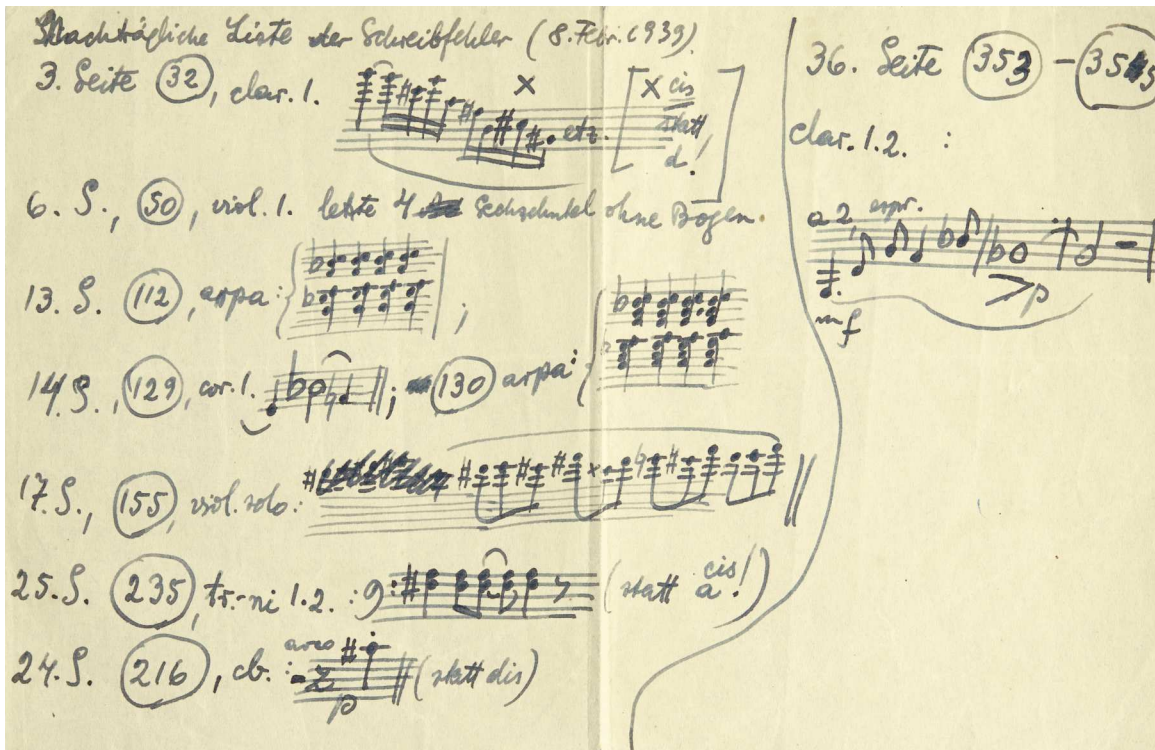 Nachträgliche Liste der Schreibfehler (8. Febr. 1939).
3. Seite 32, clar. 1. × etz. [× cis
statt
d!]
6. S., 50, viol. 1. letzte 4 Sechzehntel ohne Bogen.
13. S. 112, arpa: ;
14. S., 129, cor. 1. ; 130 arpa:
17. S., 155, viol. solo:
25. S. 235, tr-ni 1.2. : (statt a cis!)
24. S. 216, cb. : arco p (statt dis)
36. Seite 353 - 355
clar. 1.2. :
a 2, espr.
mf p